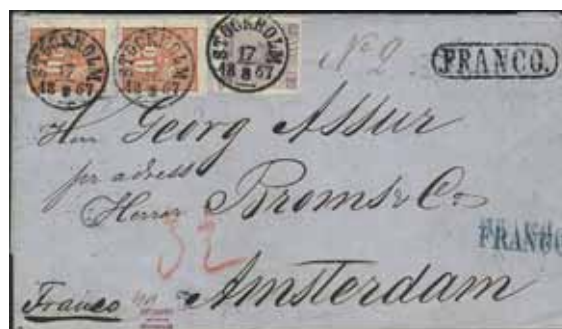 STOCKHOLM
17
18 8 67
STOCKHOLM
17
18 8 67
STOCKHOLM
17
18 8 67
No 2
FRANCO.
Herr Georg Assur
per adress
Herrar Broms & Co
32
FRANCO
Amsterdam
Franco